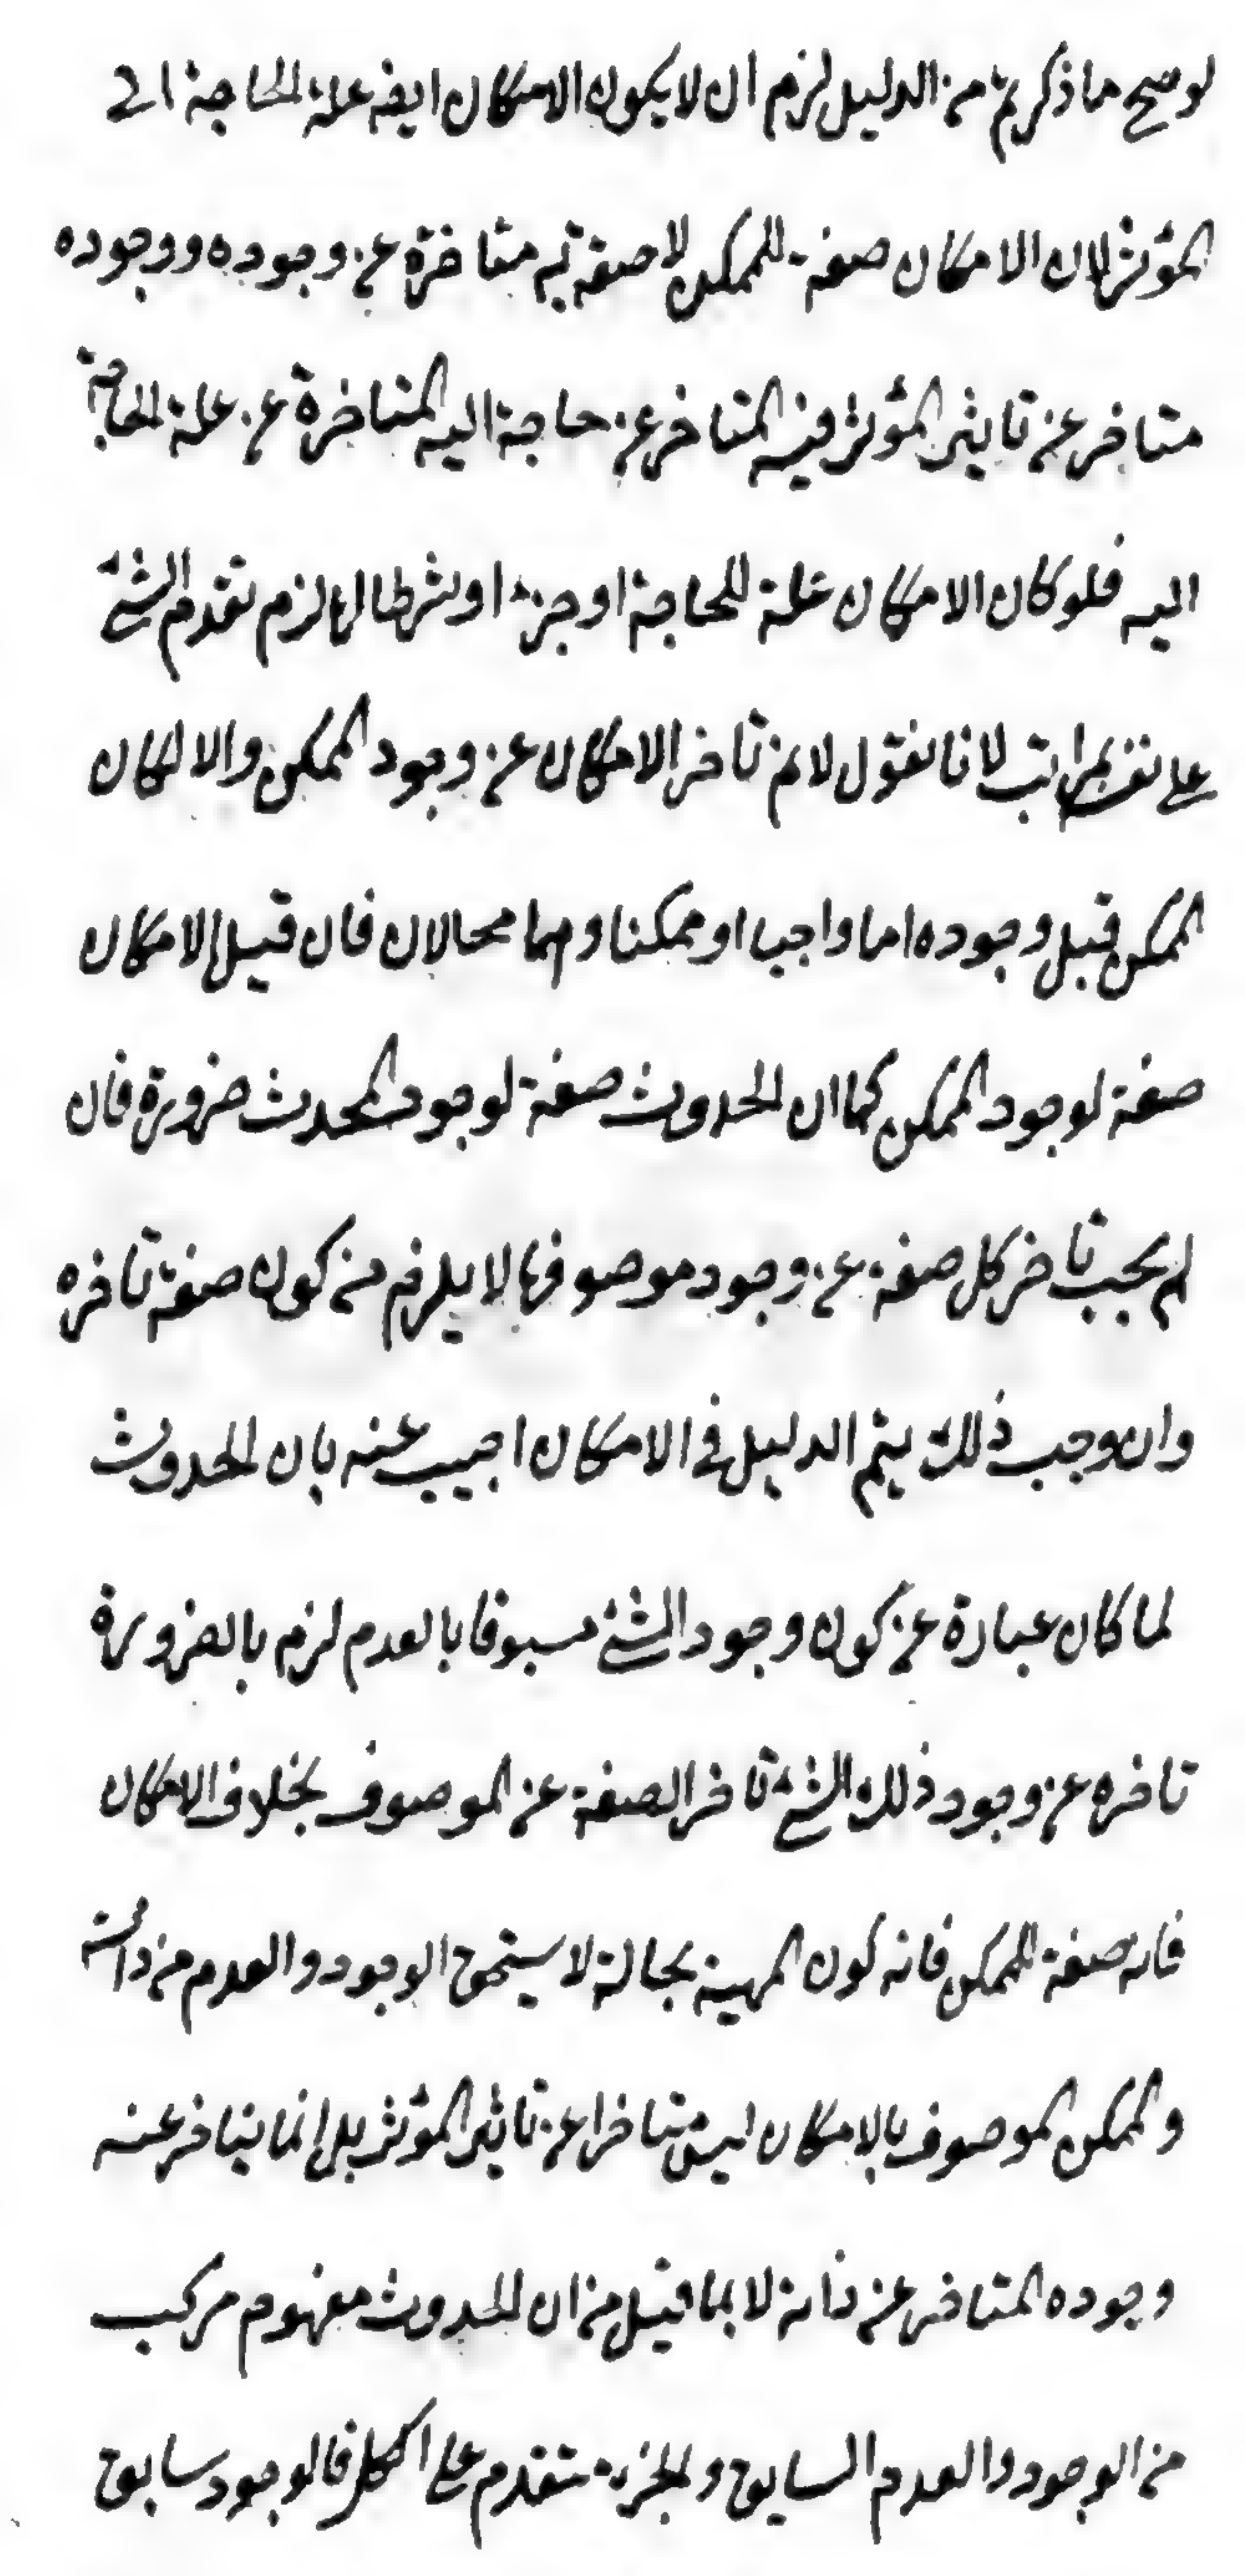 لو صح ما ذكرتم من الدليل لزم ان لا يكون الامكان ايضه علة الحاجة الى
المؤثر لان الامكان صفة للممكن لا صفته متاخرة عن وجوده ووجوده
متاخر عن تاثير المؤثر فيه المتاخر عن حاجة اليه المتاخرة عن علة الحاجة
اليه فلو كان الامكان علة للحاجة او جزء او شرطا لها لزم تقدم الشئ
على نفسه بمراتب لانا نقول لانم تاخر الامكان عن وجود الممكن والا لكان
الممكن قبل وجوده اما واجبا او ممكنا وهما محالان فان قيل الامكان
صفة لوجود الممكن كما ان الحدوث صفة لوجود المحدث ضرورة فان
لم يجب تاخر كل صفة عن وجود موصوفها لا يلزم من كون صفة تاخره
وان وجب ذلك يتم الدليل فى الامكان اجيب عنه بان الحدوث
لما كان عبارة عن كون وجود الشئ مسبوقا بالعدم لزم بالضرورة
تاخره عن وجود ذلك الشئ تاخر الصفة عن الموصوف بخلاف الامكان
فانه صفة للممكن فانه كون المهية بحالة لا يستحق الوجود والعدم من ذاته
والممكن الموصوف بالامكان ليس متاخرا عن تاثير المؤثر بل إنما يتاخر عنه
وجوده المتاخر عن ذاته لا بما قيل من ان الحدوث مفهوم مركب
من الوجود والعدم السابق والجزء متقدم على الكل فالوجود سابق